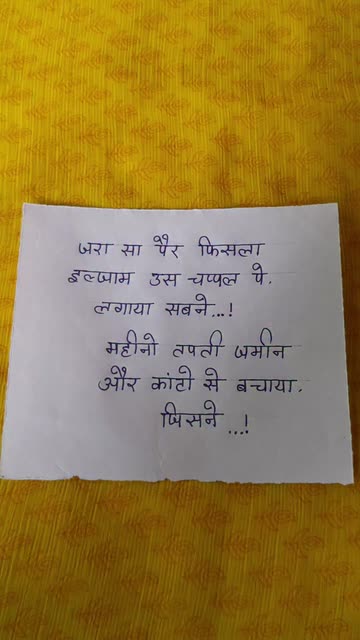 जरा सा पैर फिसला
इल्जाम उस चप्पल पे.
लगाया सबने...!
महीनो तपती जमीन
और कांटो से बचाया.
जिसने ...!